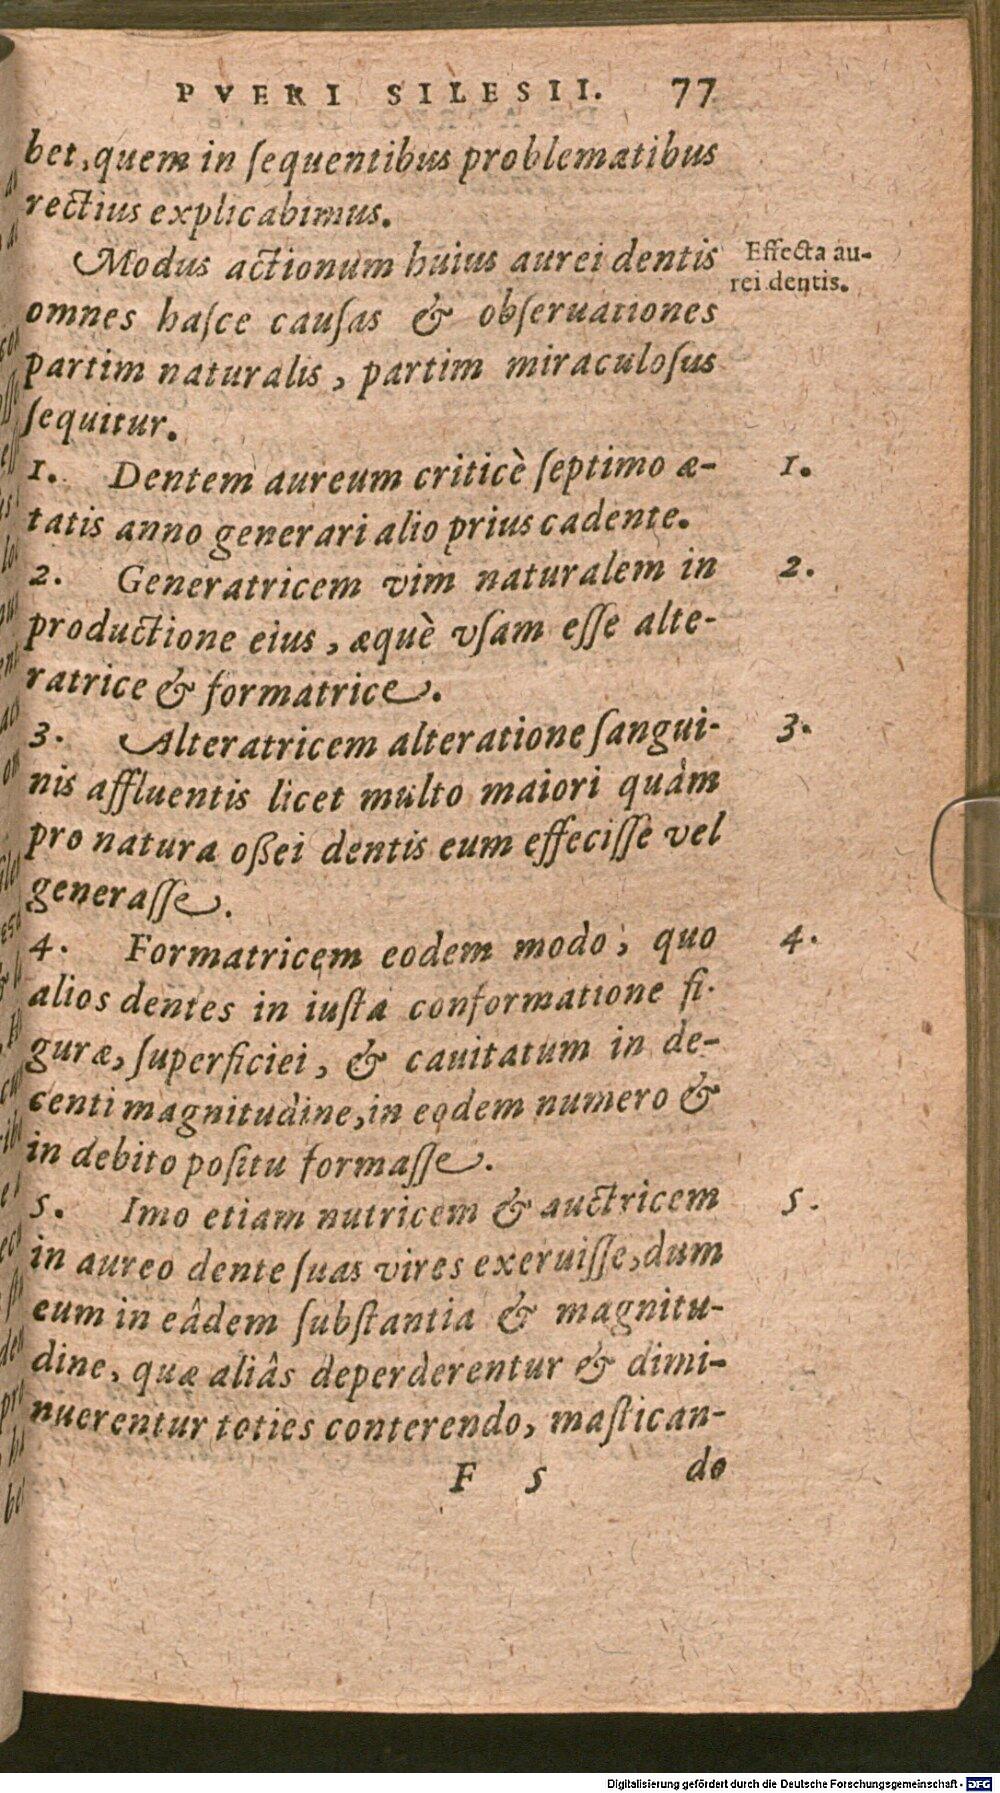 PVERI SILESII. 77
bet, quem in ſequentibus problematibus
rectius explicabimus.
Modus actionum huius aurei dentis
Effecta au-
rei dentis.
omnes haſce cauſas & obſeruationes
partim naturalis, partim miraculoſus
ſequitur.
1. Dentem aureum criticè ſeptimo æ-
1.
tatis anno generari alio prius cadente.
2. Generatricem vim naturalem in
2.
productione eius, æquè vſam eſſe alte-
ratrice & formatrice.
3. Alteratricem alteratione ſangui-
3.
nis affluentis licet multo maiori quàm
pro natura oßei dentis eum effeciſſe vel
generaſſe.
4. Formatricem eodem modo, quo
4.
alios dentes in iuſta conformatione fi-
guræ, ſuperficiei, & cauitatum in de-
centi magnitudine, in eodem numero &
in debito poſitu formaſſe.
5. Imo etiam nutricem & auctricem
5.
in aureo dente ſuas vires exeruiſſe, dum
eum in eâdem ſubſtantia & magnitu-
dine, quæ aliâs deperderentur & dimi-
nuerentur toties conterendo, maſtican-
F 5 do
Digitalisierung gefördert durch die Deutsche Forschungsgemeinschaft - DFG